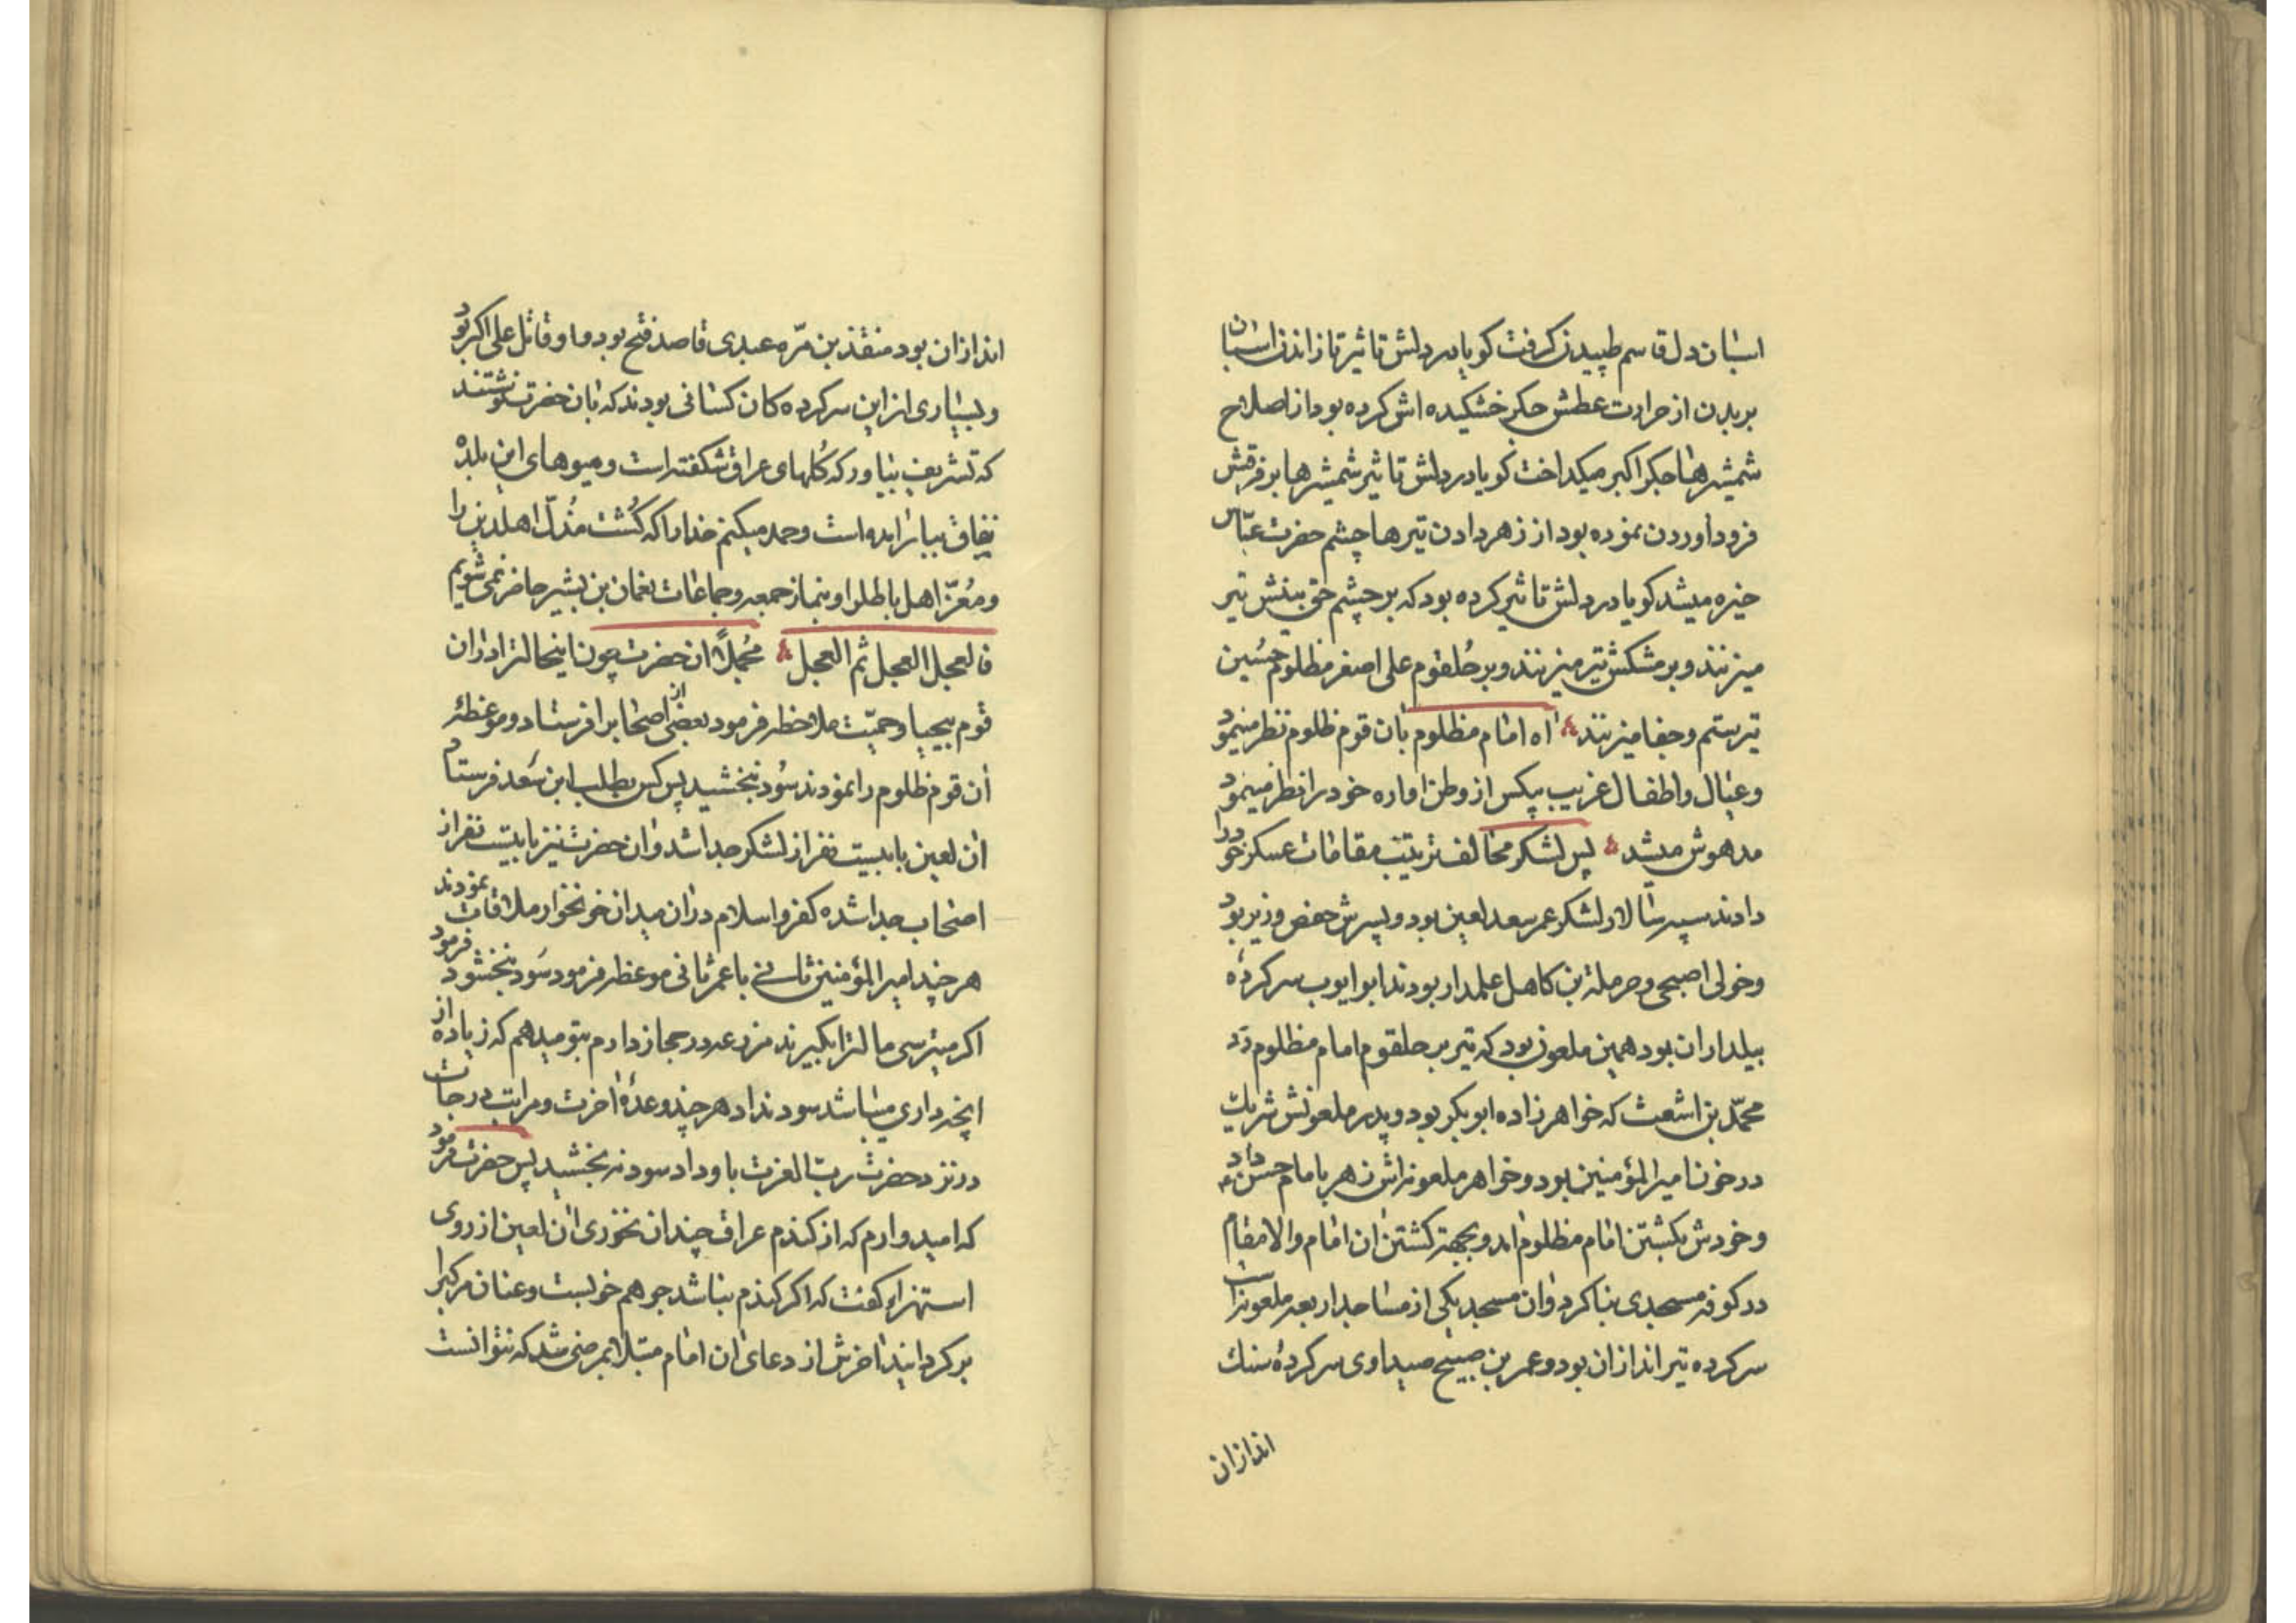 اسبان دل قاسم طپیدن گرفت کویا در دلش تاثیر تازاندن اسبان
بر بدن از حرارت عطش جکر خشکیده اش کرده بود از اصلاح
شمشیرها جکر اکبر میکداخت کویا در دلش تاثیر شمشیرها بر فرقش
فرود اوردن نموده بود از زهر دادن تیرها چشم حضرت عباس
خیره میشد کویا در دلش تاثیر کرده بود که بر چشم حق بینش تیر
میزنند و بر مشکش تیر میزنند و بر حُلقوم علی اصغر مظلوم حسین
تیر ستم و جفا میزنند اه امام مظلوم بان قوم ظلوم نظر مینمود
و عیال و اطفال غریب بیکس از وطن اواره خود را نظر مینمود
مدهوش میشد پس لشکر مخالف ترتیب مقامات عسکر خود را
دادند سپهسالار لشکر عمر سعد لعین بود و پسرش حفص وزیر بود
و خولی اصبحی و حرملة بن کاهل علمدار بودند ابو ایوب سرکردهٔ
بیلداران بود همین ملعون بود که تیر بر حلقوم امام مظلوم زد
محمّد بن اشعث که خواهرزاده ابو بکر بود و پدر ملعونش شریک
در خون امیر المؤمنین بود و خواهر ملعونه‌اش زهر بامام حسن داد
و خودش بکشتن امام مظلوم امد و بجهة کشتن ان امام والا مقام
در کوفه مسجدی بنا کرد و ان مسجد یکی از مساجد اربعه ملعونه است
سرکرده تیراندازان بود و عمر بن صبیح صیداوی سرکردهٔ سنک
اندازان
اندازان بود منقذ بن مرّه عبدی قاصد فتح بود و او قاتل علی اکبر بود
و بسیاری از این سرکرده کان کسانی بودند که بان حضرت نوشتند
که تشریف بیاور که کُلهای عراق شکفته است و میوهای این بلده
نفاق ببار امده است و حمد میکنم خدا را که کُشت مُذلّ اهلدین را
و مُعزّ اهل باطل را و بنماز جمعه و جماعات نعمان بن بشیر حاضر نمی شویم
فالعجل العجل ثم العجل مُجملاً ان حضرت چون اینحالت را از ان
قوم بیحیا و حمیّت ملاحظه فرمود بعضی از اصحاب را فرستاد و موعظهٔ
ان قوم ظلوم را نمودند سُود نبخشید پس کس بطلب ابن سَعد فرستاد
ان لعین با بیست نفر از لشکر جدا شد و ان حضرت نیز با بیست نفر از
اصحاب جدا شده کفر و اسلام در ان میدان خونخوار ملاقات نمودند
هر چند امیر المؤمنین ثانی با عمر ثانی موعظه فرمود سَود نبخشود فرمود
اکر میترسی مالت را بکیرند مزرعه در حجاز دارم بتو میدهم که زیاده از
انچه داری میباشد سود نداد هر چند وعدهٔ اخرت و مراتب درجات
در نزد حضرت ربّ العزت باو داد سود نه بخشید پس حضرت فرمود
که امیدوارم که از کندم عراق چندان نخوری ان لعین از روی
استهزاء کفت که اکر کندم نباشد جو هم خوبست و عنان مرکبرا
بر کردانید اخرش از دعای ان امام مبتلا بمرضی شد که نتوانست